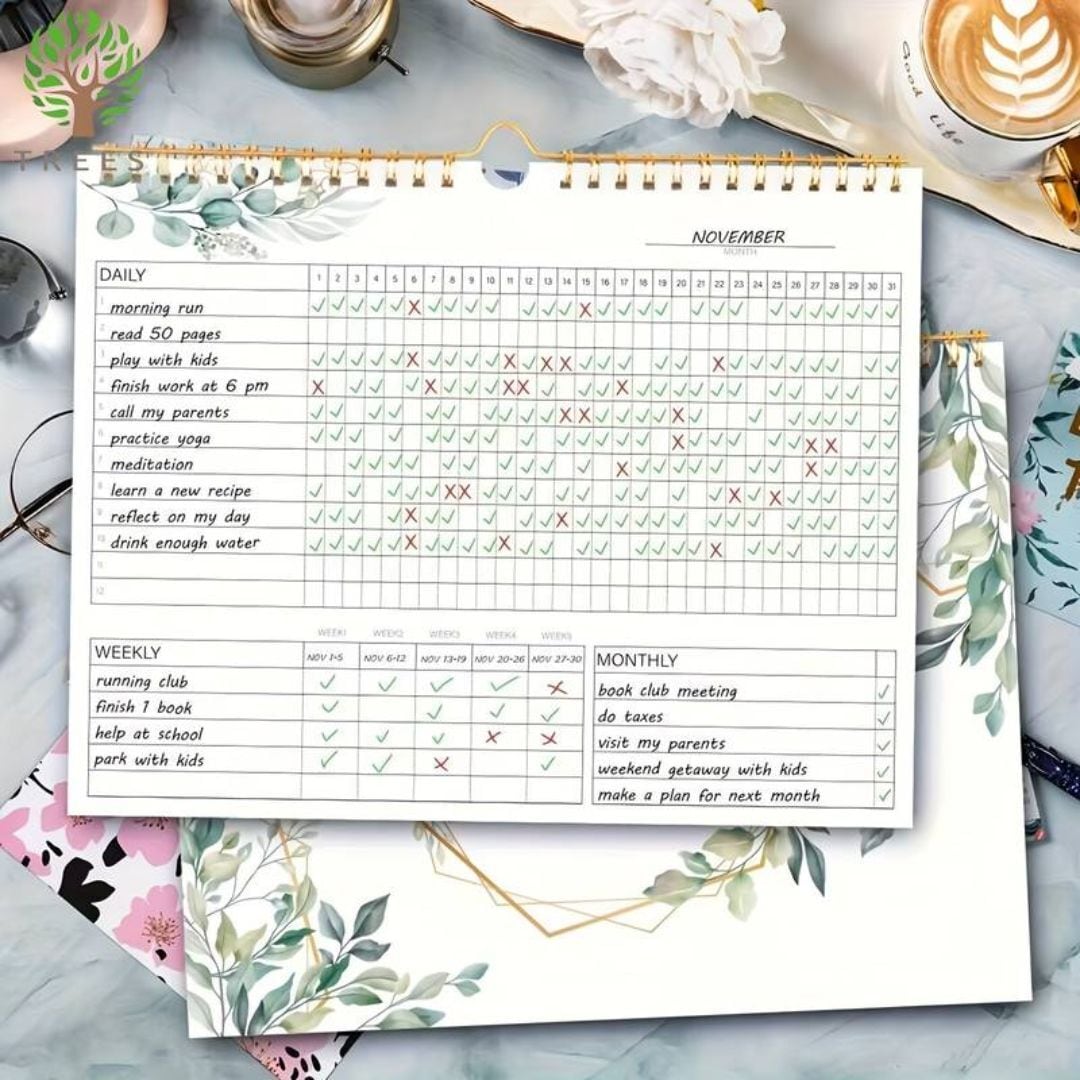 TREES
Good
life
NOVEMBER
MONTH
DAILY 1 2 3 4 5 6 7 8 9 10 11 12 13 14 15 16 17 18 19 20 21 22 23 24 25 26 27 28 29 30 31
1 morning run ✓ ✓ ✓ ✓ ✓ X ✓ ✓ ✓ ✓ ✓ ✓ ✓ X ✓ ✓ ✓ ✓ ✓ ✓ ✓ ✓ ✓ ✓ ✓ ✓ ✓ ✓
2 read 50 pages
3 play with kids
4 finish work at 6 pm
5 call my parents
6 practice yoga
7 meditation
8 learn a new recipe
9 reflect on my day
10 drink enough water
11
12
WEEK1 WEEK2 WEEK3 WEEK4 WEEK5
WEEKLY NOV 1-5 NOV 6-12 NOV 13-19 NOV 20-26 NOV 27-30
running club ✓ ✓ ✓ ✓ X
finish 1 book ✓ ✓ ✓ ✓
help at school ✓ ✓ ✓ X X
park with kids ✓ ✓ X ✓
MONTHLY
book club meeting ✓
do taxes ✓
visit my parents ✓
weekend getaway with kids ✓
make a plan for next month ✓